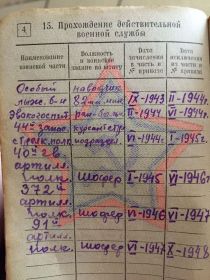 4
15. Прохождение действительной
военной службы
Наименование воинской части
Должность и воинское звание по штату
Дата зачисления в часть и № приказа
Дата исключения из части и № приказа
Особый наводчик
лыжн. б-н 82 мм мин IX-1943 II-1944г.
Эвакогоспит. ран-боль- II-1944 VI-1944г.
44ый запас. курсант стр.
стрелк. полк VI-1944г. I-1945г.
40-26
артилл.
полк. шофер I-1945 VI-1946г
372й
артилл.
полк. шофер VI-1946 VI-1947
91й
артилл.
полк. шофер VI-1947 X-1948